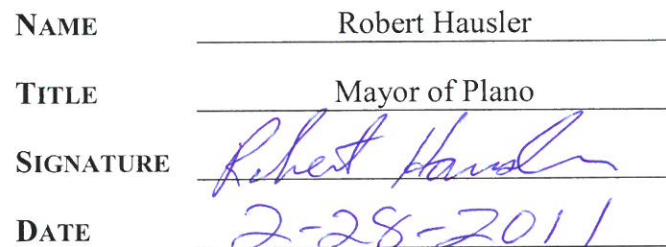 NAME Robert Hausler
TITLE Mayor of Plano
SIGNATURE Robert Hausler
DATE 2-28-2011